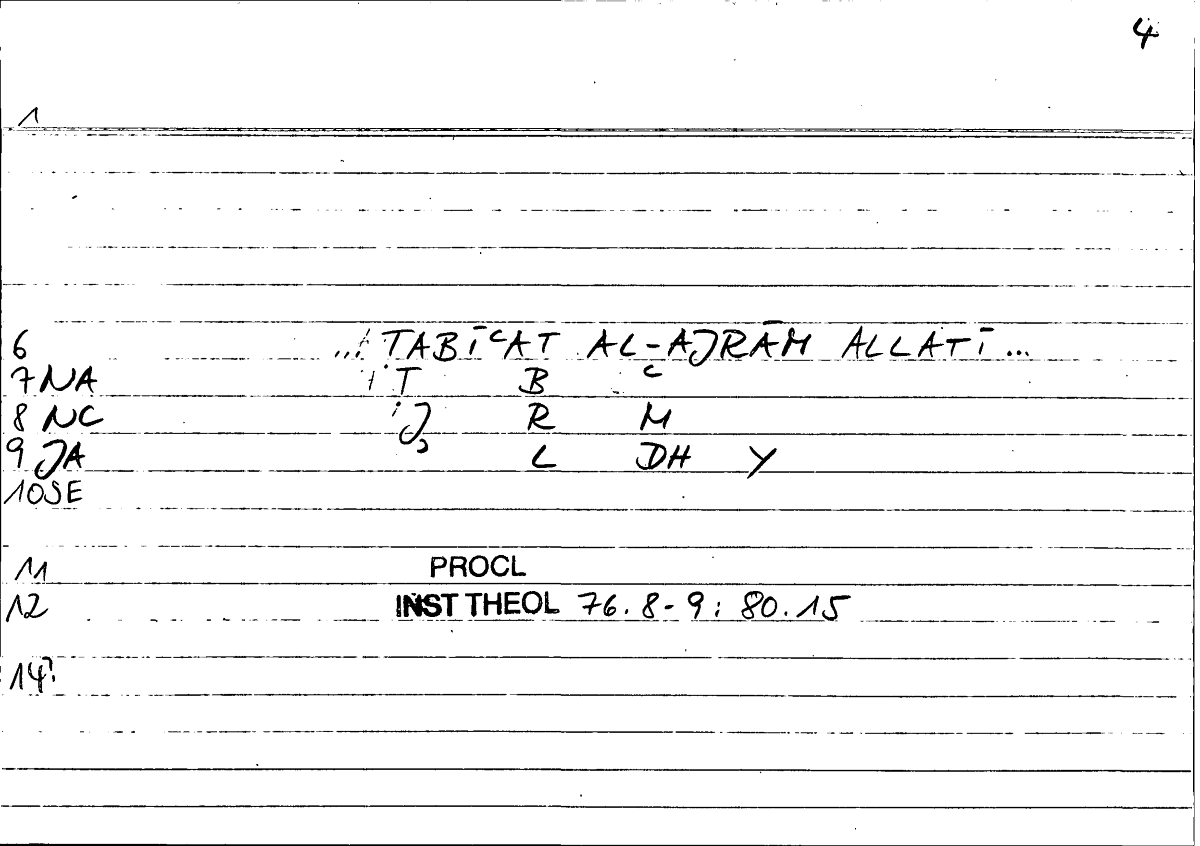 4
1
6 ... TABĪʿAT AL-AJRĀM ALLATĪ ...
7 NA T B ʿ
8 NC J R M
9 JA L DH Y
10 SE
11 PROCL
12 INST THEOL 76.8-9: 80.15
14: